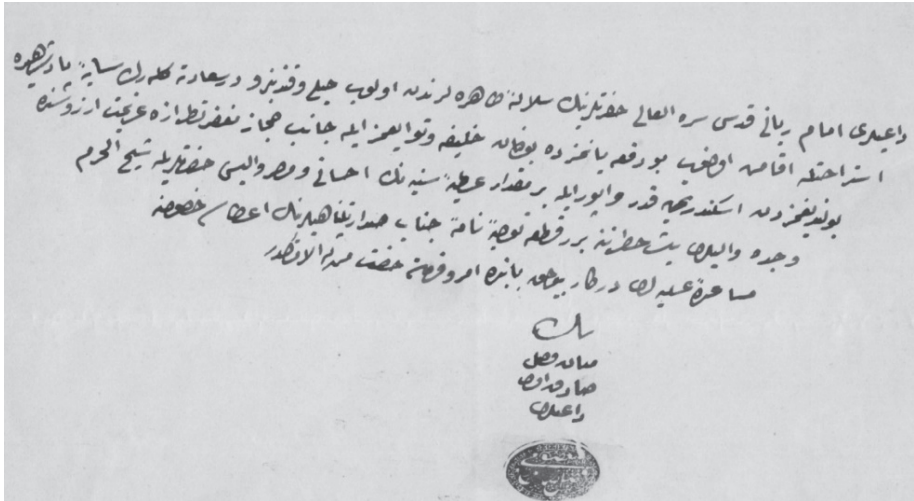 داعیلری امام ربانی قدس سره العالی حضرتلرینك سلالهٔ طاهره لرندن اولوب وقدنبرو درسعادته كله رك سایهٔ پادشاهیده
استراحتله اقامت اولنوب بو دفعه یانمزده بولنان خلیفه وتوابعمز ایله جانب حجاز عزیمت ارزوسنده
بولندیغمزدن اسكندریه یه قدر واپور ایله بر مقدار عطیهٔ سنیه نك احسانی ومصر والیسی حضرتلریله شیخ الحرم
وجده والیلری بر قطعه توصیه نامهٔ جناب صدارتپناهیلرینك اعطاسی خصوصنه
مساعدهٔ علیه لری دركار بیورلمق بابنده امر وفرمان حضرت من له الامركدر
بنده
میان فضل
داعیلری